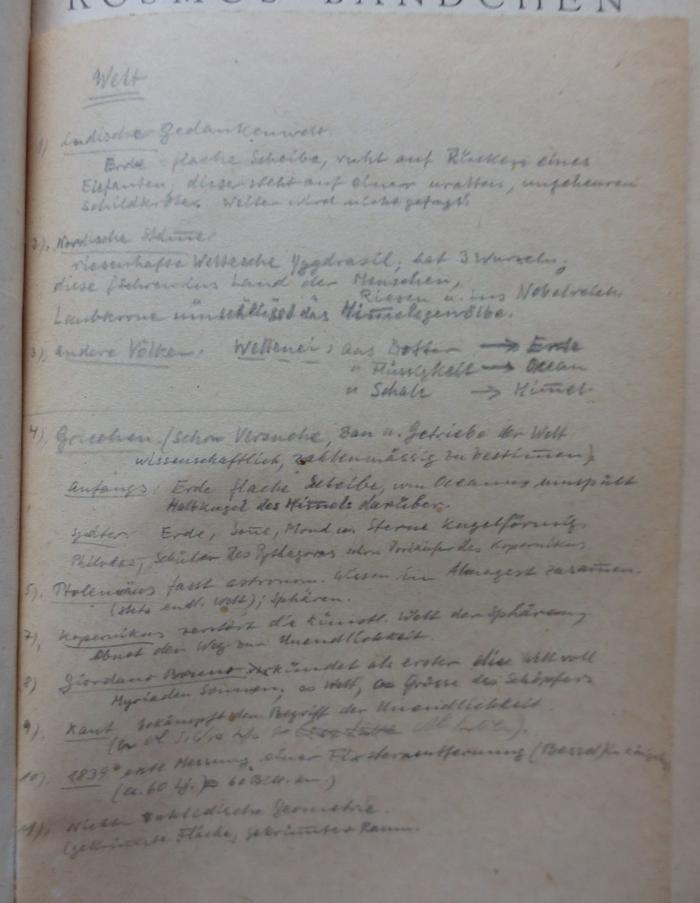 KOSMOS BÄNDCHEN
Welt
1) Indische Gedankenwelt
Erde flache Scheibe, ruht auf Rücken eines
Elefanten, dieser steht auf einer uralten, ungeheuren
Schildkröte. Weiter wird nicht gesagt.
2). Nordische Stämme:
riesenhafte Weltesche Yggdrasil; hat 3 Wurzeln,
diese führen ins Land der Menschen,
Riesen u. ins Nebelreich.
Laubkrone umschliesst das Himelsgewölbe.
3) andere Völker: Weltenei: aus Dotter → Erde
" Flüssigkeit → Ocean
" Schale → Himel
4), Griechen. (schon Versuche, Bau u. Getriebe der Welt
wissenschaftlich, zahlenmässig zu bestimen)
Anfangs: Erde flache Scheibe, von Oceanus umspült
Halbkugel des Himels darüber.
später: Erde, Sone, Mond u. Sterne kugelförmig.
Schüler des Pythagoras schon Vorläufer des Kopernikus
5). Ptolemäus fasst astronom. Wissen im Almagest zusamen.
(stets endl. Welt); Sphären.
7), Kopernikus zerstört die künstl. Welt der Sphären,
ebnet den Weg zur Unendlichkeit.
8) Giordano Bruno verkündet als erster die Welt voll
Myriaden Sonnen, ∞ Welt, ∞ Grösse des Schöpfers
9), Kant bekämpft den Begriff der Unendlichkeit.
10) 1839 erste Messung einer Fixsternentfernung (Bessel)
(ca. 60 Lj.)
11), Nicht euklidische Geometrie.
(gekrümmte Fläche, gekrümmter Raum.